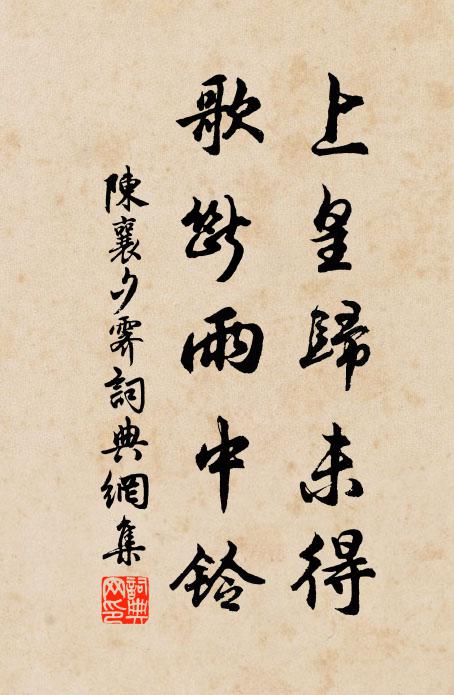 上皇歸未得
歌斷雨中鈴
陳襄夕霽詞典網集
詞典
网印